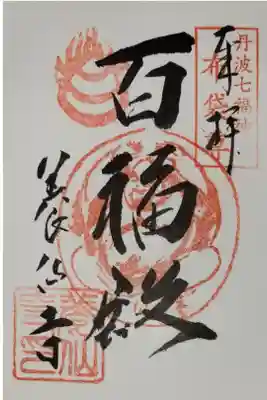 丹波七福神
布袋
奉拝
百福殿
養仙寺